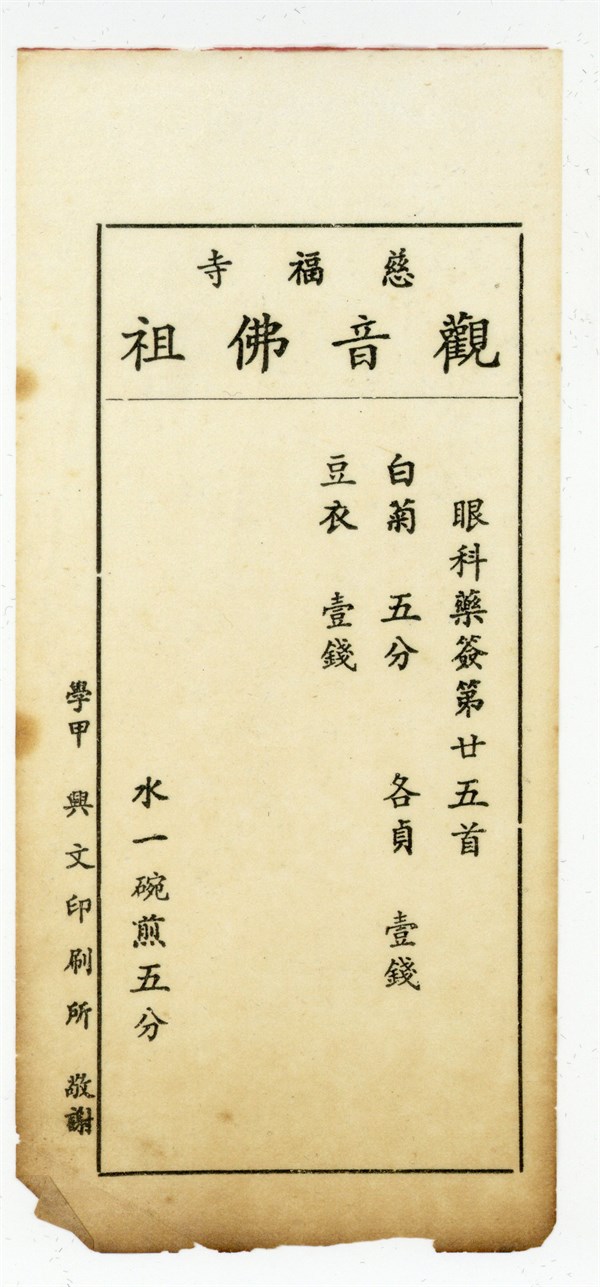 慈福寺
觀音佛祖
眼科藥簽第廿五首
白菊 五分 各貞 壹錢
豆衣 壹錢
水一碗煎五分
學甲 興文印刷所 敬謝